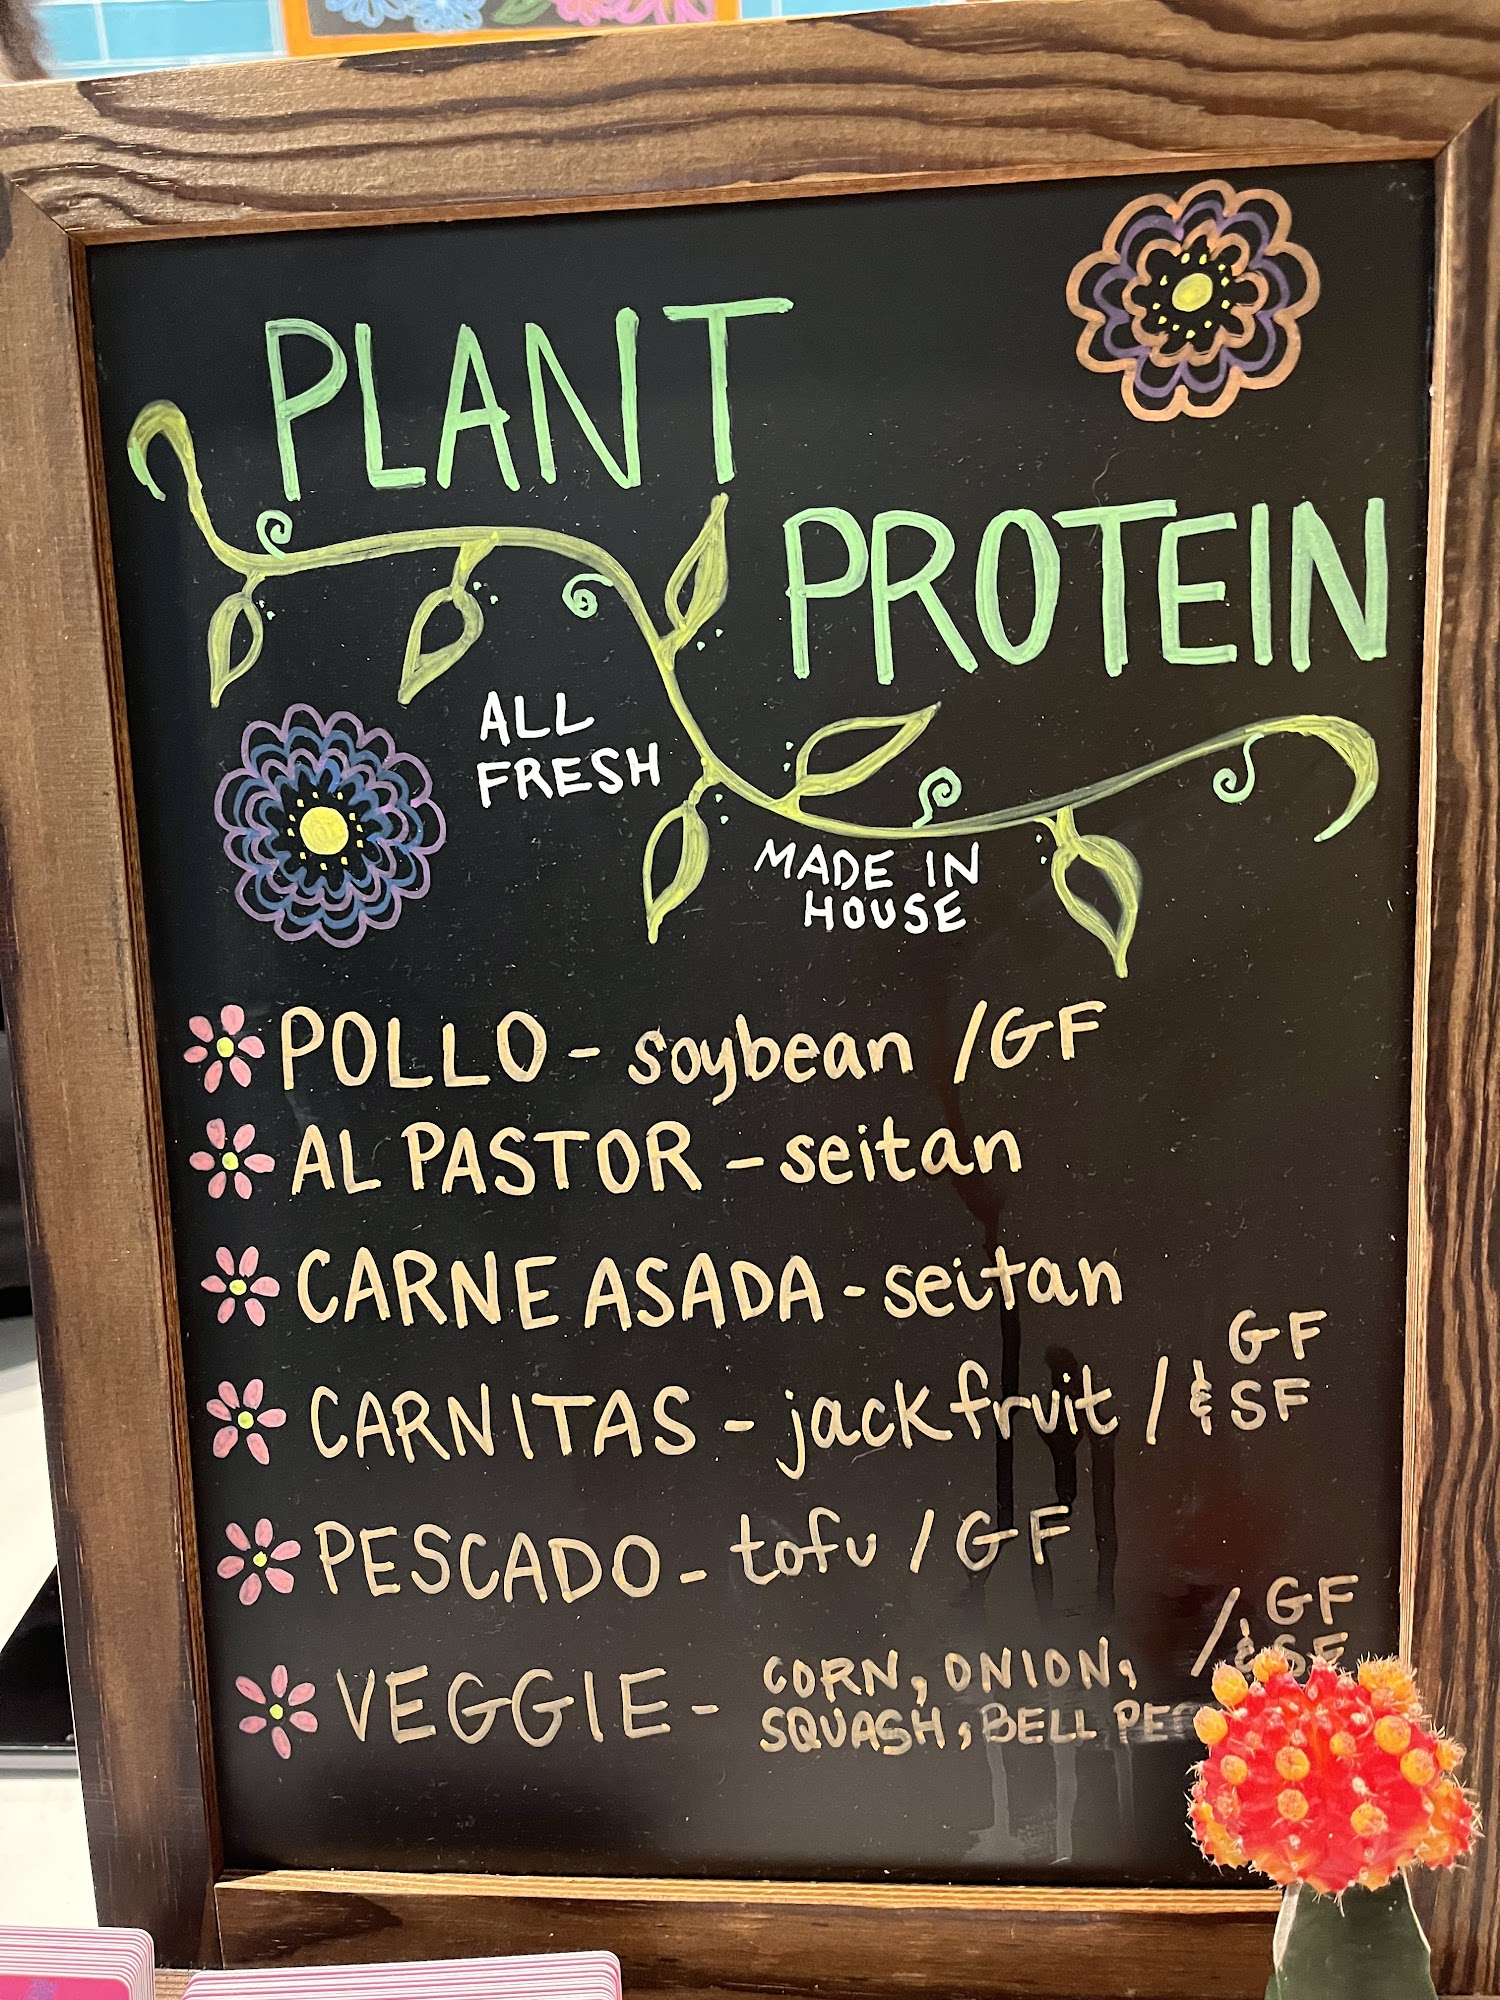 PLANT
PROTEIN
ALL
FRESH
MADE IN
HOUSE
POLLO - soybean / GF
AL PASTOR - seitan
CARNE ASADA - seitan
CARNITAS - jackfruit / GF
& SF
PESCADO - tofu / GF
VEGGIE - CORN, ONION, / GF
& SF
SQUASH, BELL